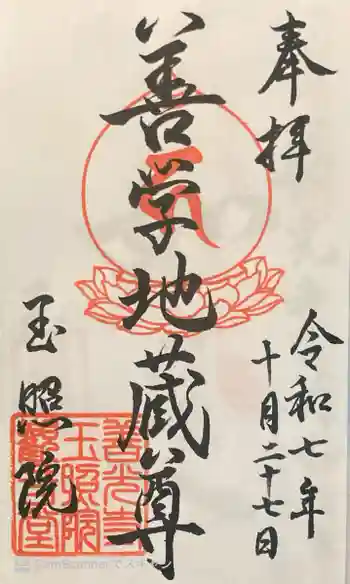 奉拝
令和七年
十月二十七日
善学地蔵尊
玉照院
善光寺
玉照院
CamScanner でスキ